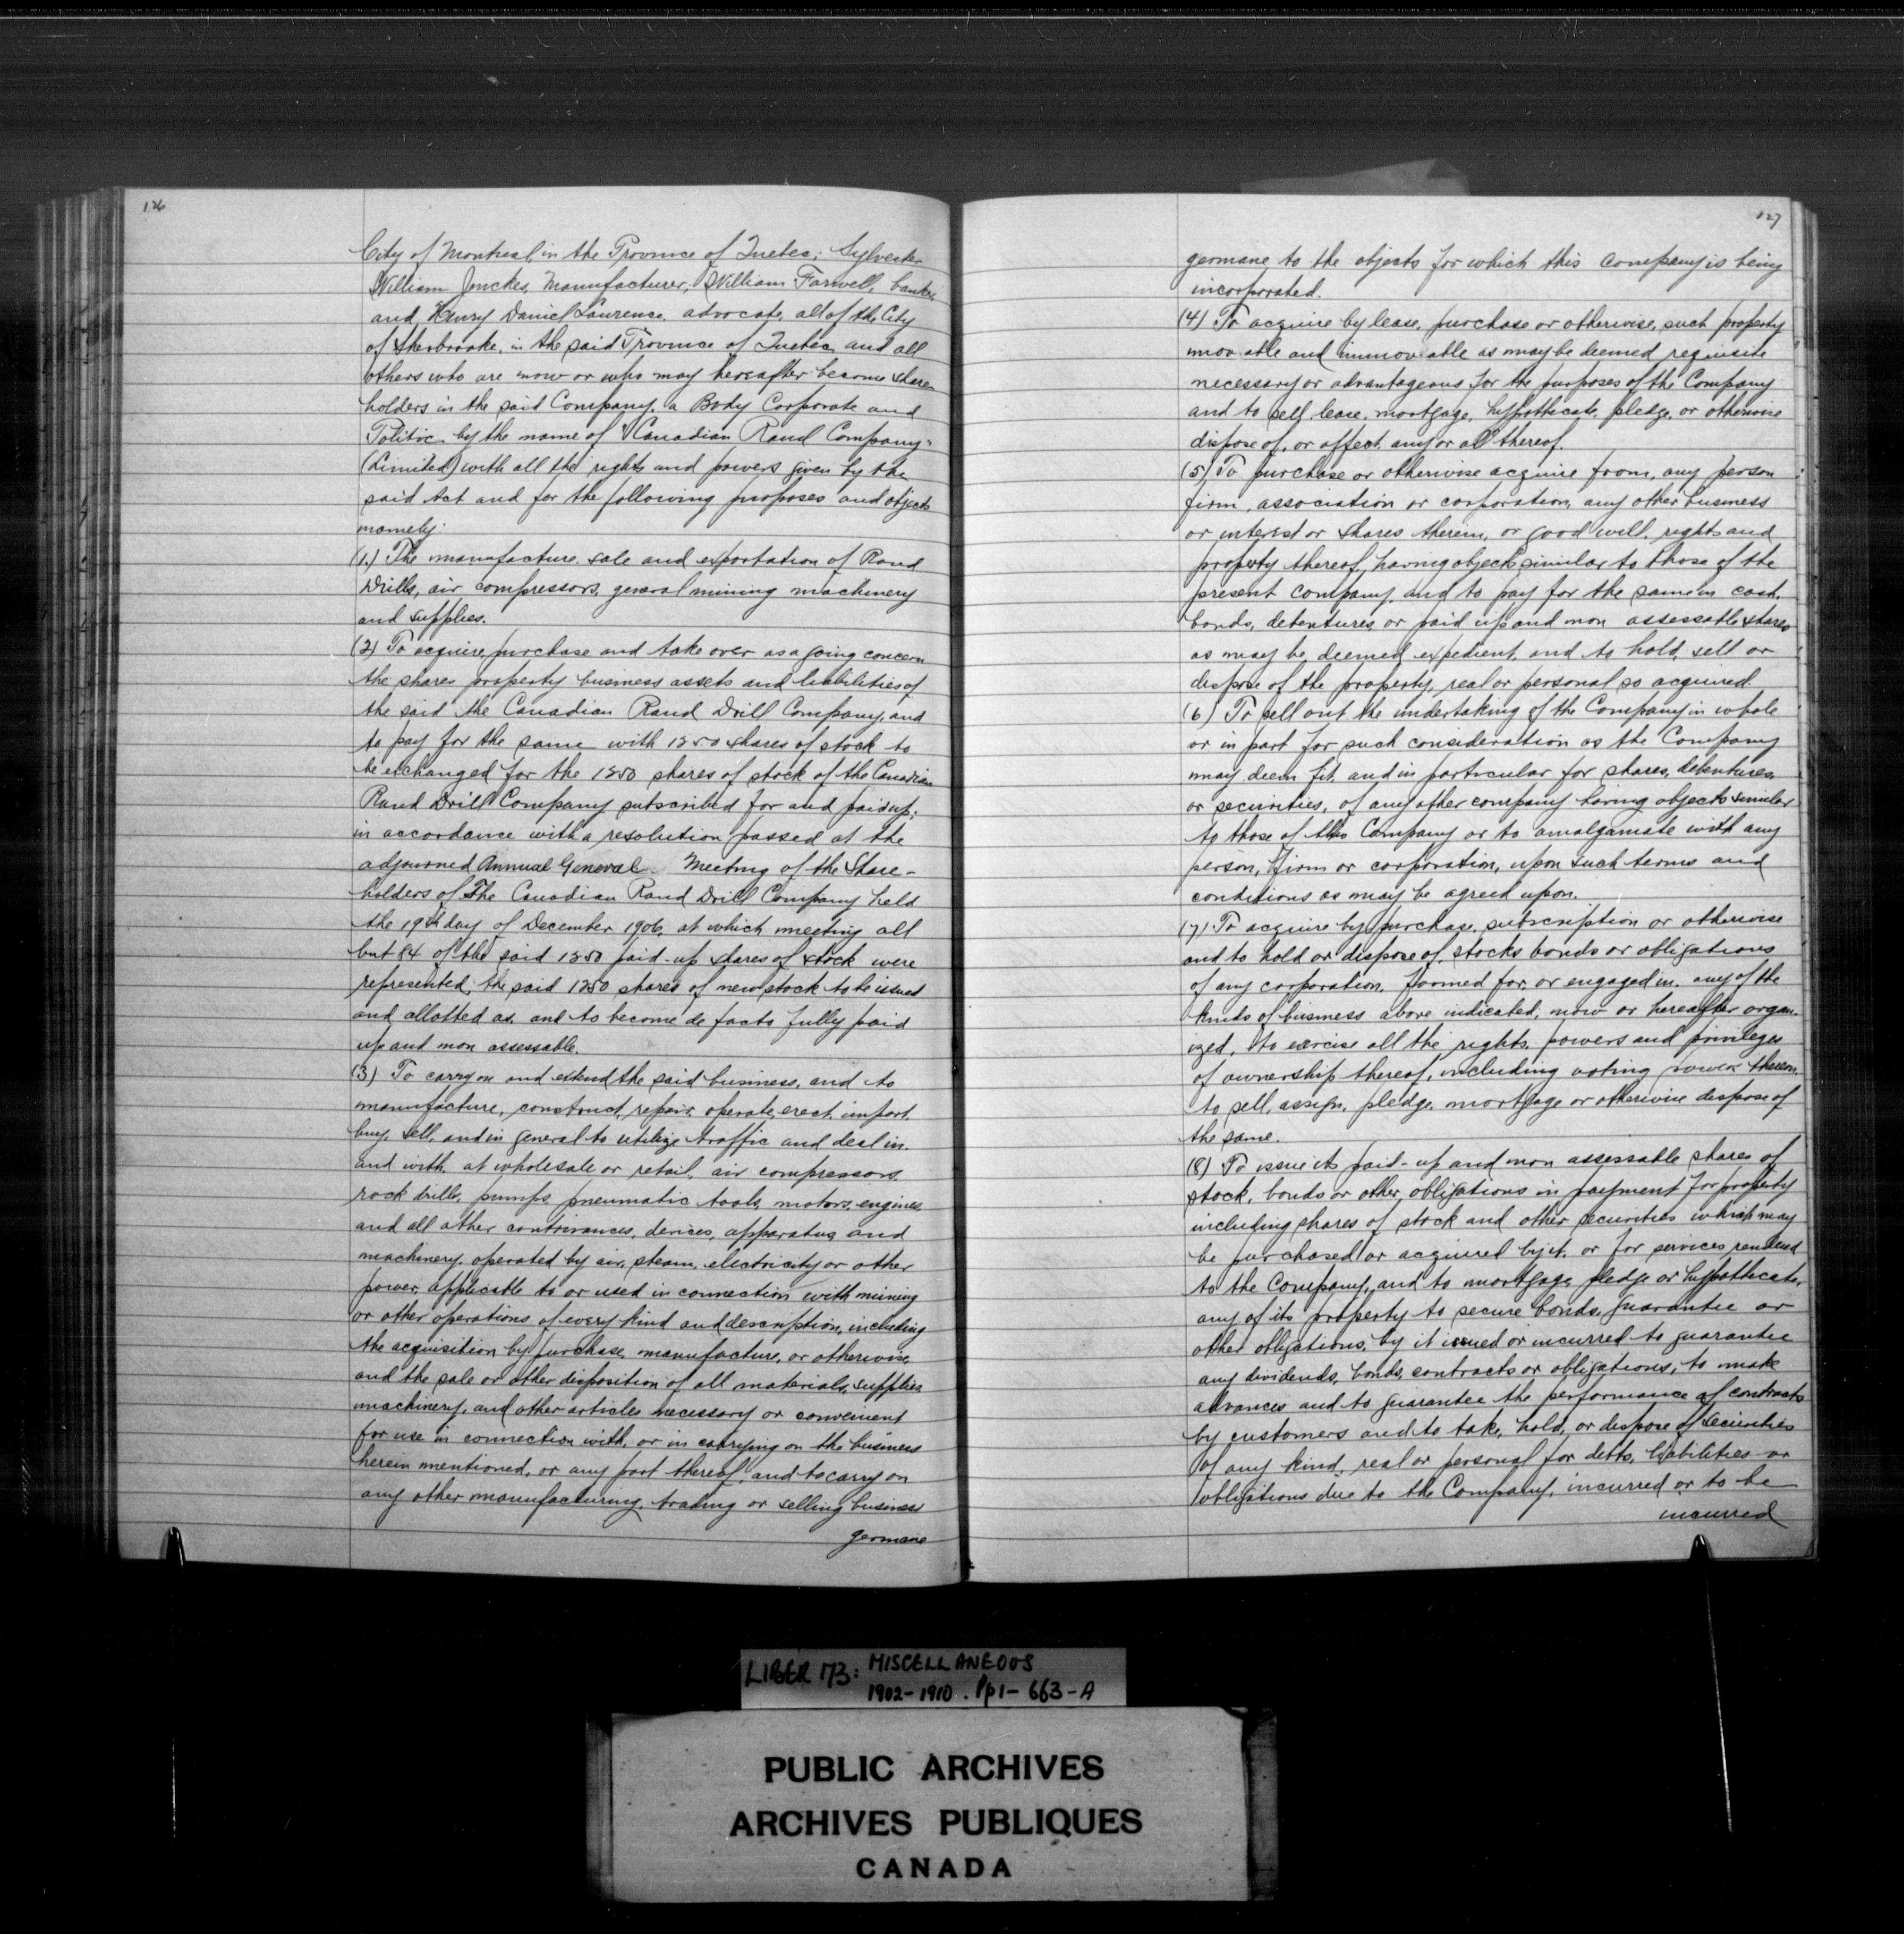 126
City of Montreal, in the Province of Quebec; Sylvester
William Jenckes, Manufacturer; William Farwell, banker,
and Henry Daniel Lawrence, advocate, all of the City
of Sherbrooke, in the said Province of Quebec, and all
others who are now or who may hereafter become share
holders in the said Company, a Body Corporate and
Politic by the name of "Canadian Rand Company"
(Limited) with all the rights and powers given by the
said Act and for the following purposes and objects
namely:
(1.) The manufacture, sale and exportation of Rand
Drills, air compressors, general mining machinery
and supplies.
(2) To acquire purchase and take over as a going concern
the shares property business assets and liabilities of
the said the Canadian Rand Drill Company, and
to pay for the same with 1250 shares of stock to
be exchanged for the 1250 shares of stock of the Canadian
Rand Drill Company subscribed for and paid up;
in accordance with a resolution passed at the
adjourned Annual General Meeting of the Share-
holders of The Canadian Rand Drill Company held
the 19th day of December 1906, at which meeting all
but 84 of the said 1250 paid-up shares of stock were
represented; the said 1250 shares of new stock to be issued
and allotted as, and to become de facto fully paid
up and non assessable.
(3) To carry on and extend the said business, and to
manufacture, construct, repair, operate, erect, import,
buy, sell, and in general to utilize traffic and deal in,
and with, at wholesale or retail, air compressors,
rock drills, pumps, pneumatic tools, motors, engines,
and all other contrivances, devices, apparatus and
machinery, operated by air, steam, electricity or other
power, applicable to or used in connection with mining
or other operations of every kind and description, including
the acquisition by purchase, manufacture, or otherwise,
and the sale or other disposition of all materials, supplies
machinery, and other articles necessary or convenient
for use in connection with, or in carrying on the business
herein mentioned, or any part thereof, and to carry on
any other manufacturing, trading or selling business
germane
127
germane to the objects for which this Company is being
incorporated.
(4) To acquire by lease, purchase or otherwise, such property
movable and immovable as may be deemed requisite
necessary or advantageous for the purposes of the Company
and to sell, lease, mortgage, hypothecate, pledge, or otherwise
dispose of, or affect any or all thereof.
(5) To purchase or otherwise acquire from, any person
firm, association or corporation, any other business
or interest or shares therein, or good will, rights and
property thereof, having objects similar to those of the
present Company, and to pay for the same in cash,
bonds, debentures, or paid up and non assessable shares
as may be deemed expedient, and to hold, sell or
dispose of the property, real or personal so acquired.
(6) To sell out the undertaking of the Company in whole
or in part for such consideration as the Company
may deem fit, and in particular for shares, debentures,
or securities, of any other company having objects similar
to those of this Company or to amalgamate with any
person, firm or corporation, upon such terms and
conditions as may be agreed upon.
(7) To acquire by purchase, subscription or otherwise
and to hold or dispose of, stocks bonds or obligations
of any corporation, formed for, or engaged in, any of the
kinds of business above indicated, now or hereafter organ-
ized, to exercise all the rights, powers and privileges
of ownership thereof, including voting power thereon,
to sell, assign, pledge, mortgage or otherwise dispose of
the same.
(8) To issue its paid-up and non assessable shares of
stock, bonds or other obligations in payment for property
including shares of stock and other securities which may
be purchased or acquired by it, or for services rendered
to the Company, and to mortgage, pledge or hypothecate,
any of its property to secure bonds, guarantee or
other obligations, by it issued or incurred to guarantee
any dividends, bonds, contracts or obligations, to make
advances and to guarantee the performance of contracts
by customers and to take, hold, or dispose of securities
of any kind, real or personal for debts, liabilities or
obligations due to the Company, incurred or to be
incurred
LIBER 173: MISCELLANEOUS
1902-1910. Pp1-663-A
PUBLIC ARCHIVES
ARCHIVES PUBLIQUES
CANADA